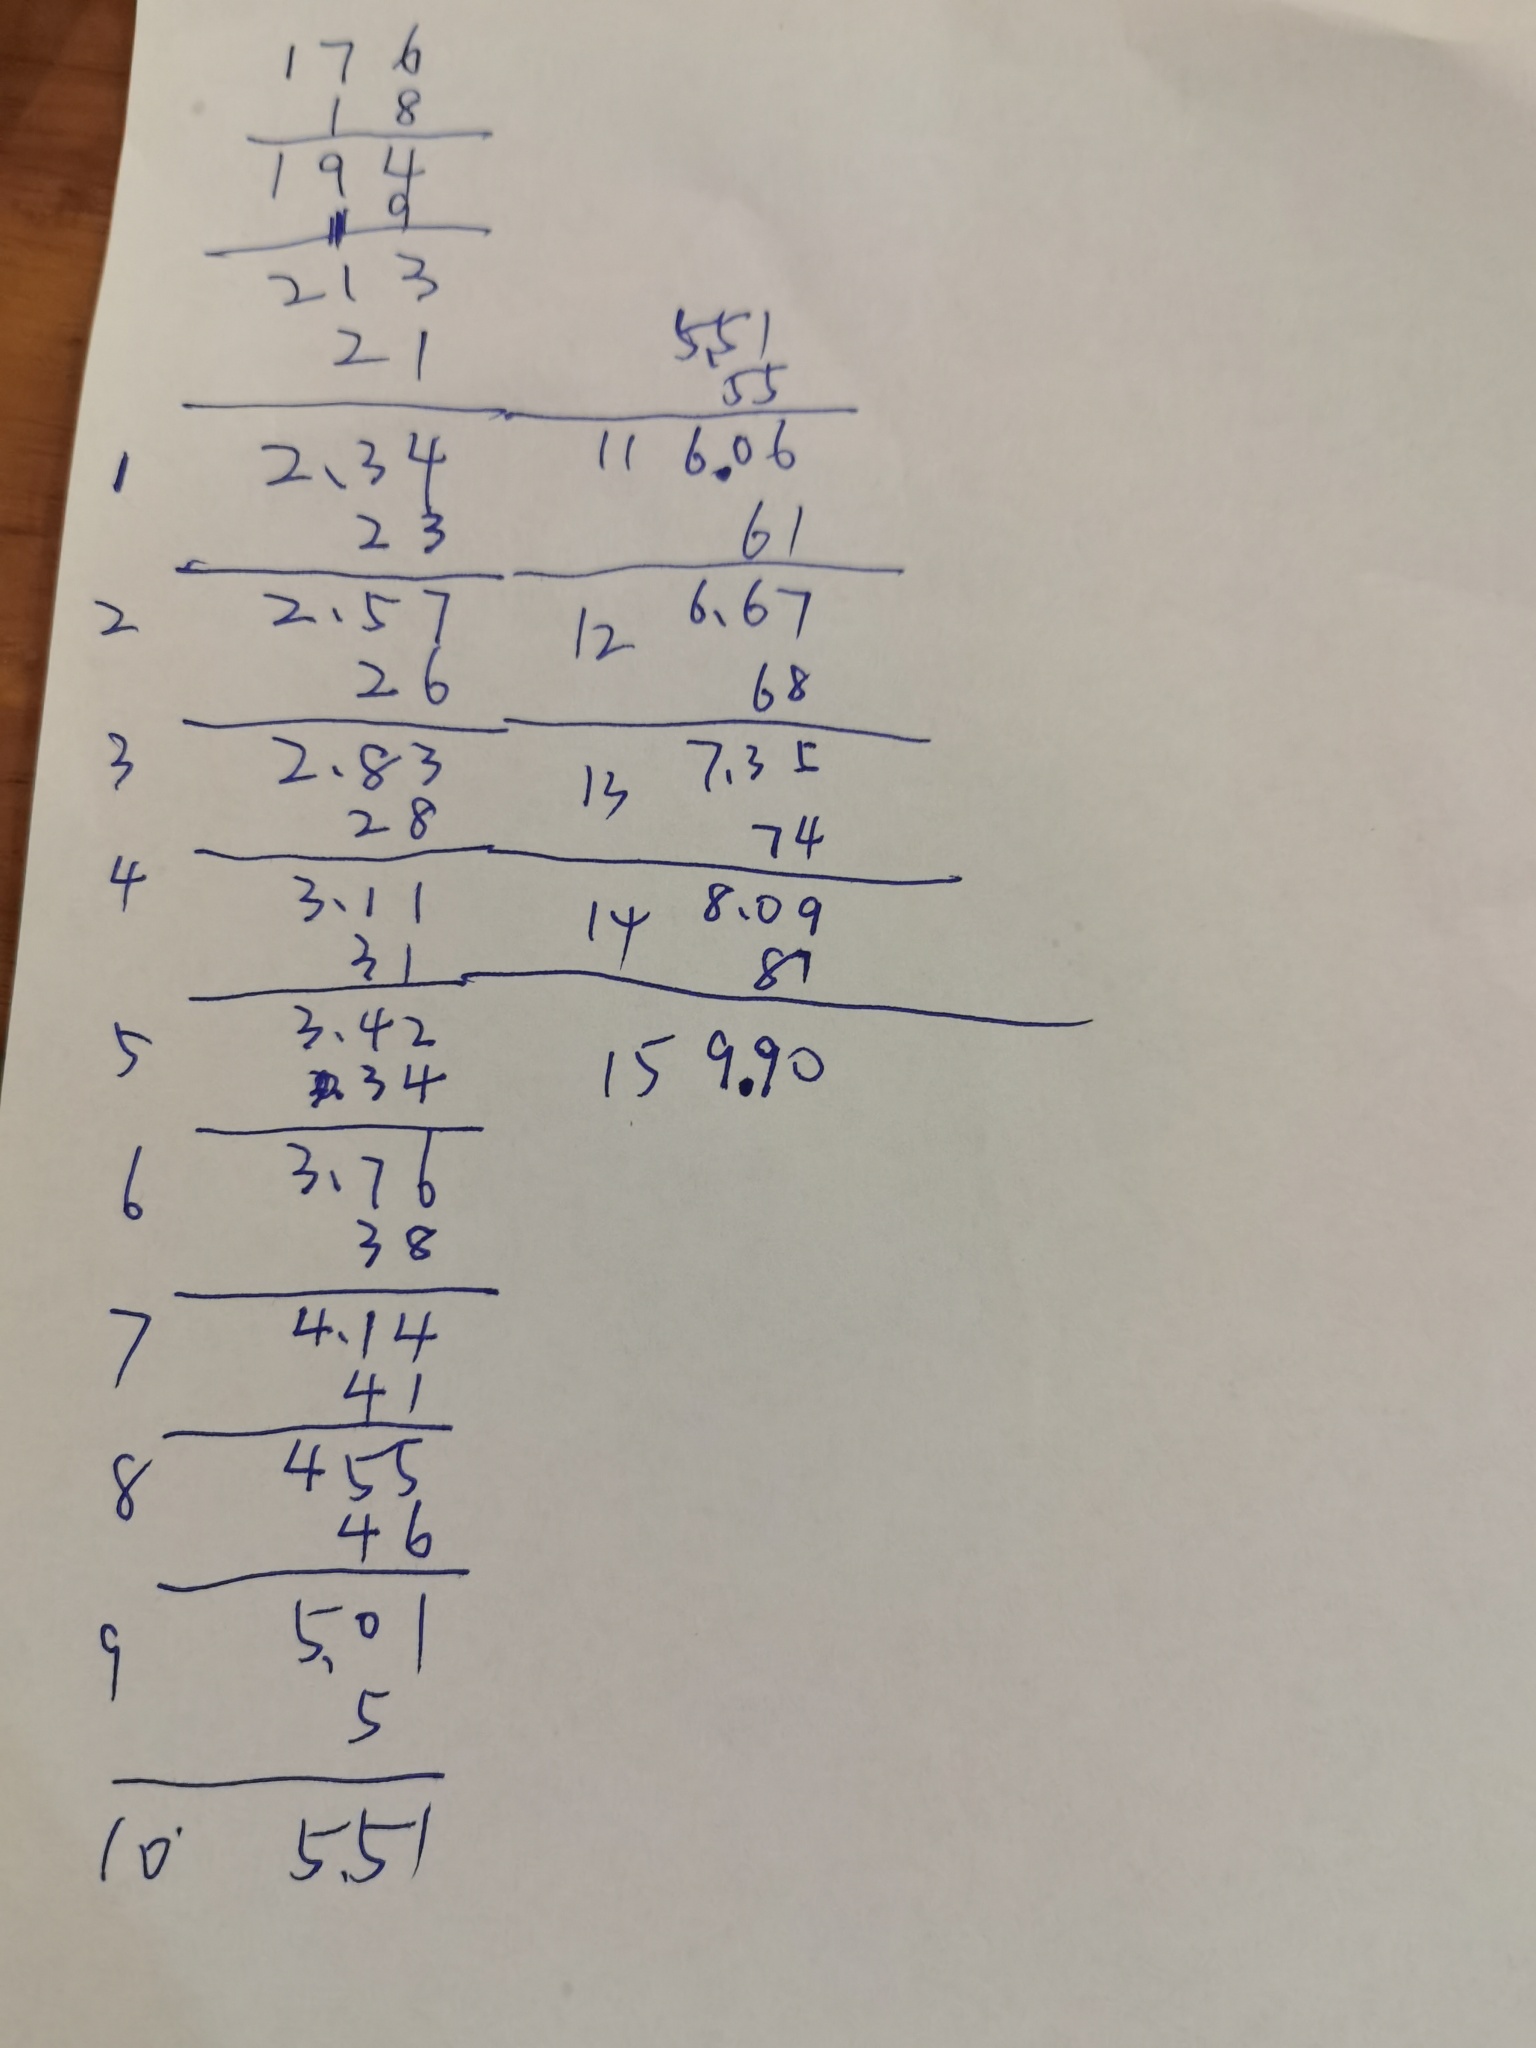 176
18
194
19
213
21
1 2.34
23
2 2.57
26
3 2.83
28
4 3.11
31
5 3.42
34
6 3.76
38
7 4.14
41
8 455
46
9 5.01
5
10 5.51
5.51
55
11 6.06
61
12 6.67
68
13 7.35
74
14 8.09
81
15 9.90